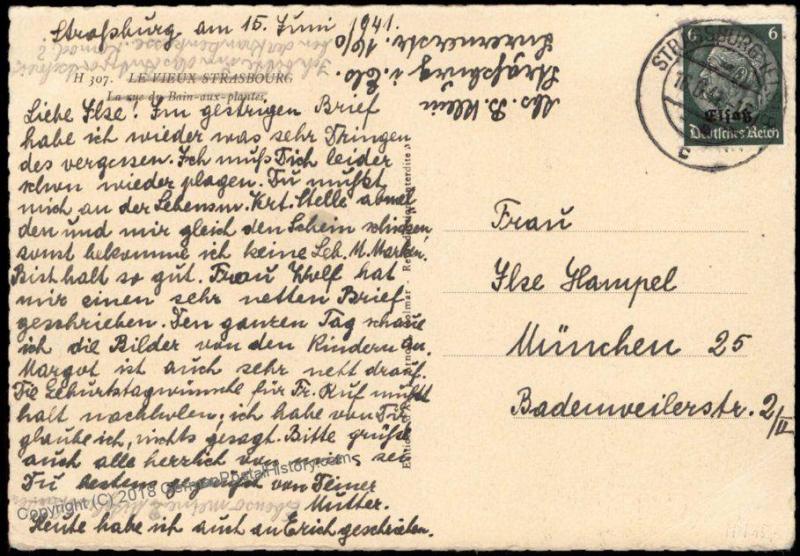 Straßburg am 15. Juni 1941.
Abs. B. Klein
Straßburg i. Els.
Luzernerstr. 16/0
H 307. LE VIEUX STRASBOURG
La rue du Bain-aux-plantes
Liebe Ilse! Im gestrigen Brief
habe ich wieder was sehr Dringen
des vergessen. Ich muß Dich leider
schon wieder plagen. Du mußt
mich an der Lebensm. Krt. Stelle abmel
den und mir gleich den Schein schicken
sonst bekomme ich keine Leb. M. Marken.
Bist halt so gut. Frau Wolf hat
mir einen sehr netten Brief
geschrieben. Den ganzen Tag schaue
ich die Bilder von den Kindern an.
Margot ist auch sehr nett drauf.
Die Geburtstagwünsche für Fr. Ruf mußt
halt nachholen; ich habe von Dir
glaube ich, nichts gesagt. Bitte grüße
auch alle herzlich von mir, sei
Du bestens gegrüßt von Deiner
Mutter.
Heute habe ich auch an Erich geschrieben.
6 6
Elsaß
Deutsches Reich
STRASSBURG
c
Frau
Ilse Hampel
München 25
Badenweilerstr. 2/II
Copyright (C) 2018 GermanPostalHistory.com